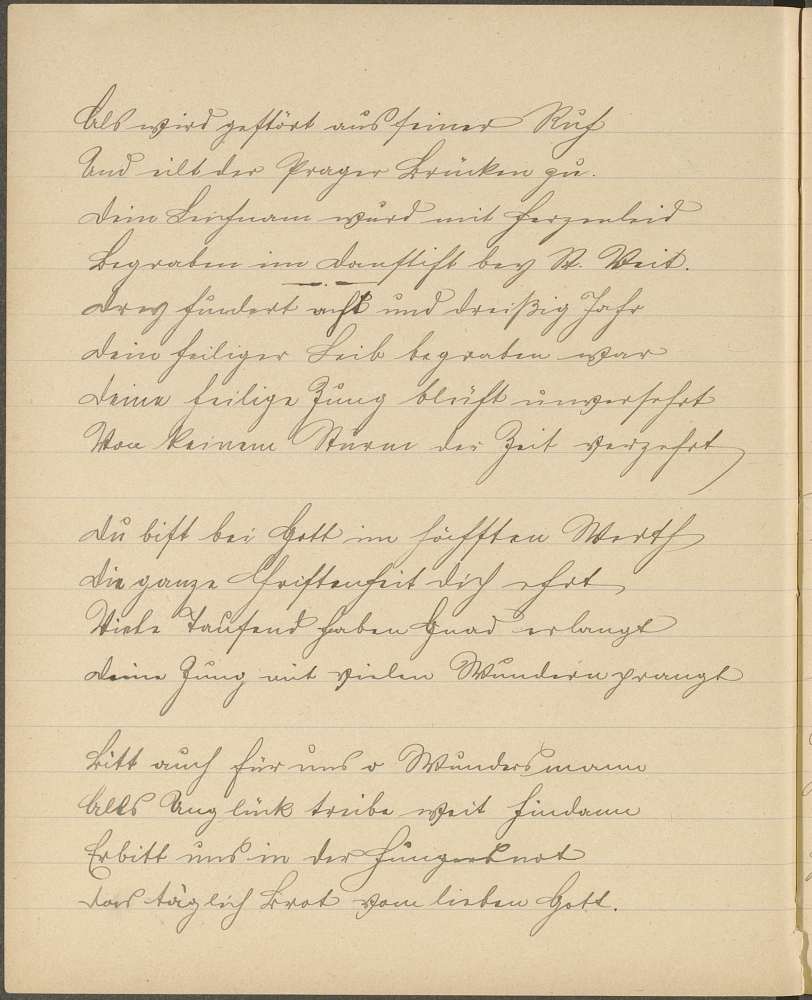 Als wird gestört aus seiner Ruh
Und eilt der Prager Brücken zu.
Dein Leichnam wurd mit Herzenleid
Begraben im Domstift bey St. Veit.
Drey hundert acht und dreißig Jahr
Dein heiliger Leib begraben war
Deine heilige Zung blüht unversehrt
Von keinem Sturm der Zeit verzehrt
Du bist bei Gott im höchsten Werth
Die ganze Christenheit dich ehrt
Viele Taufend haben Gnad erlangt
Deine Zung mit vielen Wundern prangt
Bitt auch für uns o Wundersmann
Alles Unglück treibe weit hindann
Erbitt uns in der Hungersnot
Das täglich Brot vom lieben Gott.